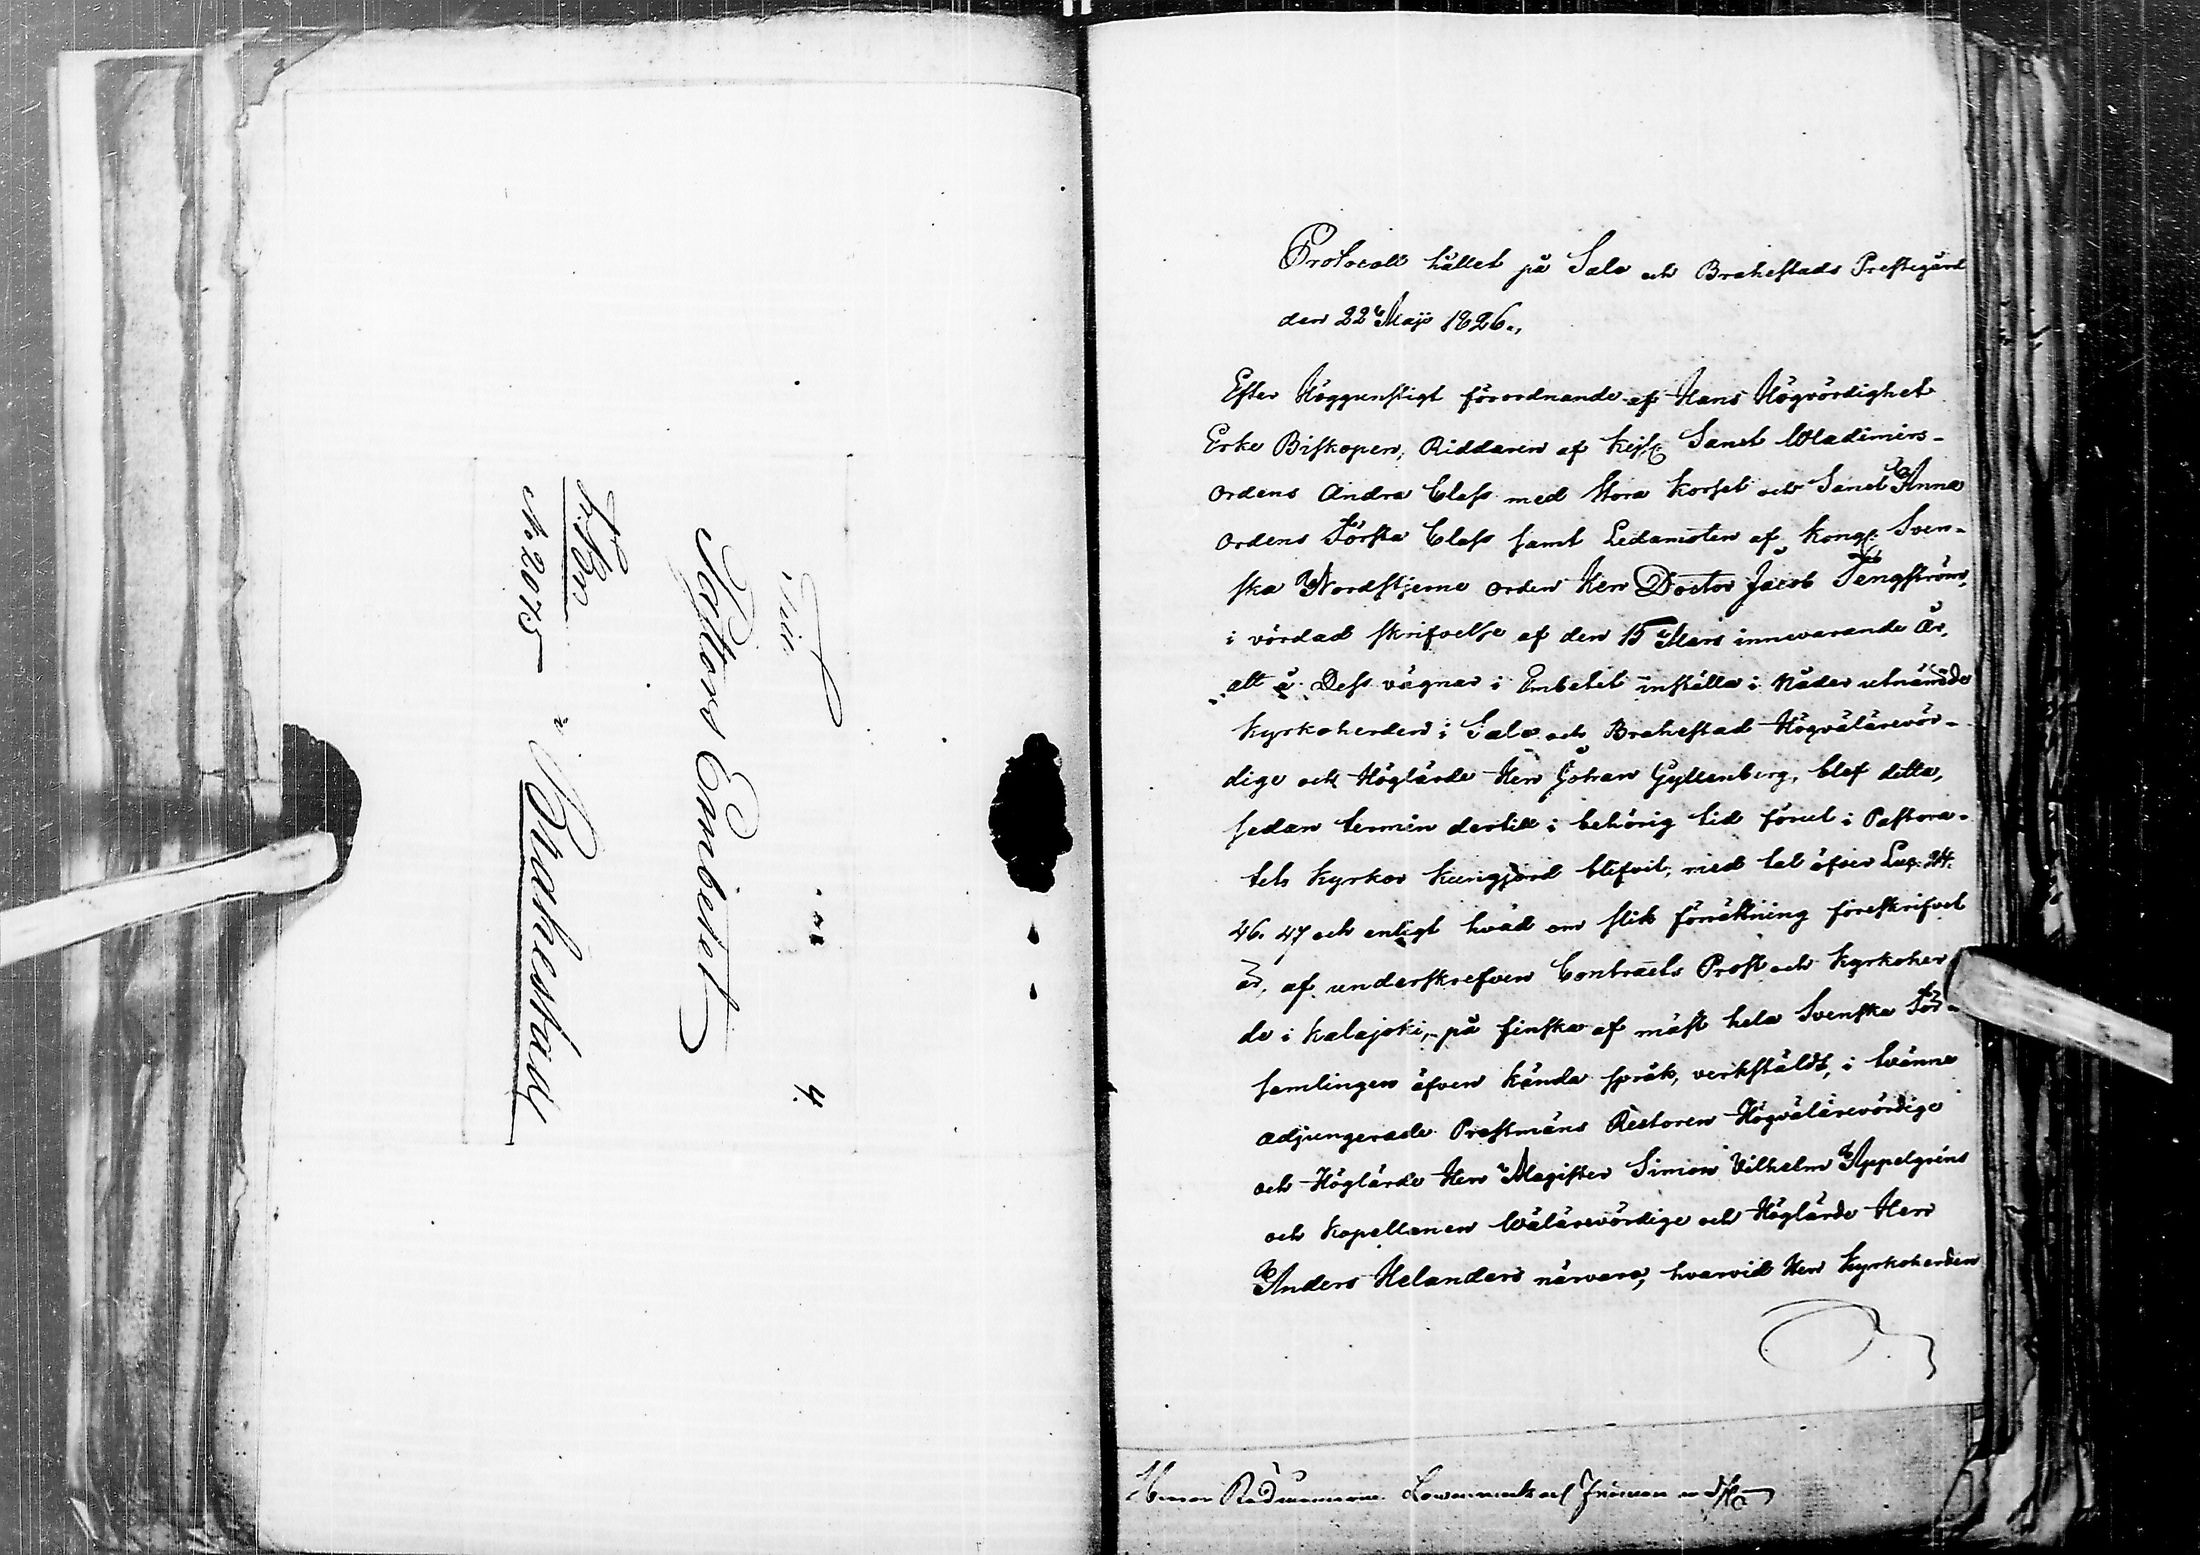 Till
Pastors Embetet
i Brahestad
No 2075
4.
Protocoll hållet på Salo och Brahestads Prestegård
den 22 Maji 1826.,
Efter Höggunstigt förordnande af Hans Högvördighet
Erke Biskopen, Riddaren af Kejs: Sanct Wladimirs-
Ordens Andra Class med Stora Korset och Sanct Anna
Ordens Första Class samt Ledamoten af Kongl: Sven-
ska Nordstjerne Orden Herr Doctor Jacob Tengström,
i vördad skrifvelse af den 15 Mars innevarande År,
att å Dess vägnar i Embetet inställa i Nåder utnämnde
Kyrkoherden i Salo och Brahestad Högvälärevör-
dige och Höglärde Herr Johan Gyllenberg, blef detta,
sedan termin dertill i behörig tid förut i Pastora-
tets Kyrkor kungjord blifvit, med tal öfver Luc. 24.
46. 47 och enligt hvad om slik förrättning föreskrifvet
är, af underskrefven Contracts Prost och Kyrkoher
de i Kalajoki, på finska af mäst hela Svenska För-
samlingen äfven kända språk, verkstäldt, i tvänne
adjungerade Prestmäns Rectoren Högvälärevördige
och Höglärde Herr Magister Simon Vilhelm Appelgréns
och Kapellanen Wälärevördige och Höglärde Herr
Anders Helanders närvaro, hvarvid Herr Kyrkoherden
Rådmännerne och